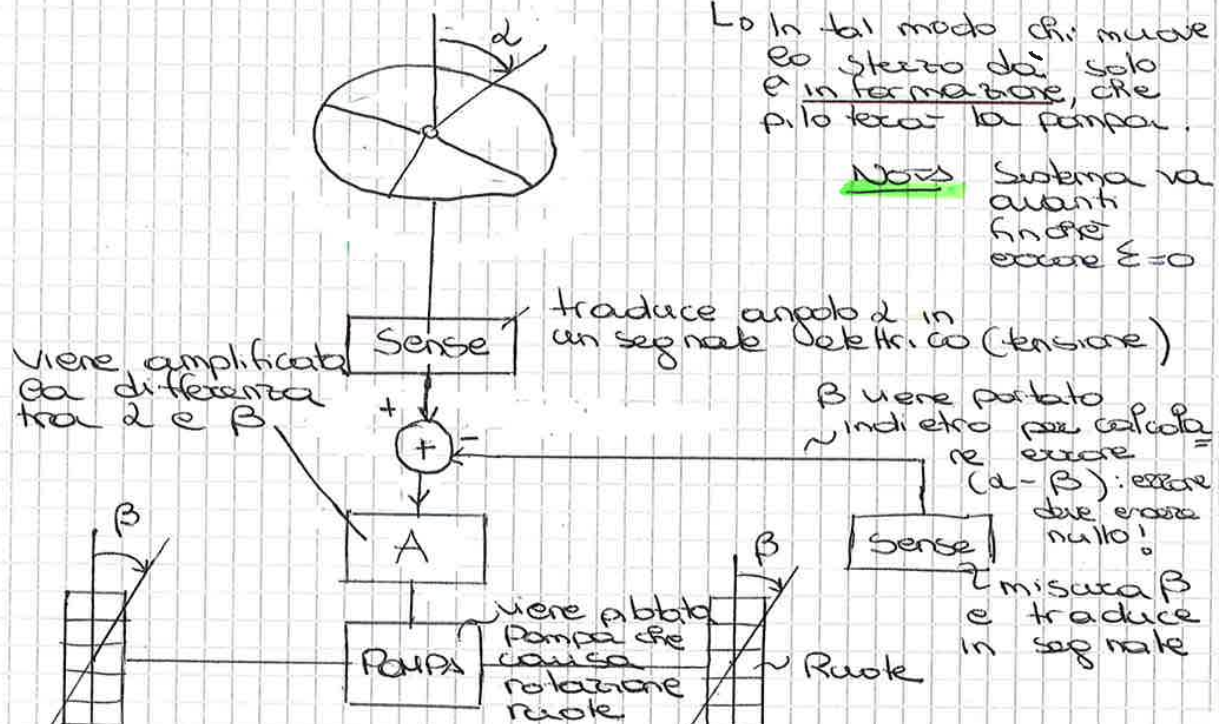 α
↳ In tal modo chi muove
lo sterzo dà solo
l'informazione, che
piloterà la pompa.
NOTA Sistema va
avanti
finché
errore ε=0
Sense
traduce angolo α in
un segnale elettrico (tensione)
viene amplificata
la differenza
tra α e β
+
+
-
β viene portato
indietro per calcola
re errore
(α-β): errore
deve essere
nullo!
A
Sense
misura β
e traduce
in segnale
β
β
POMPA
viene pilotata
Pompa che
causa
rotazione
ruote
Ruote